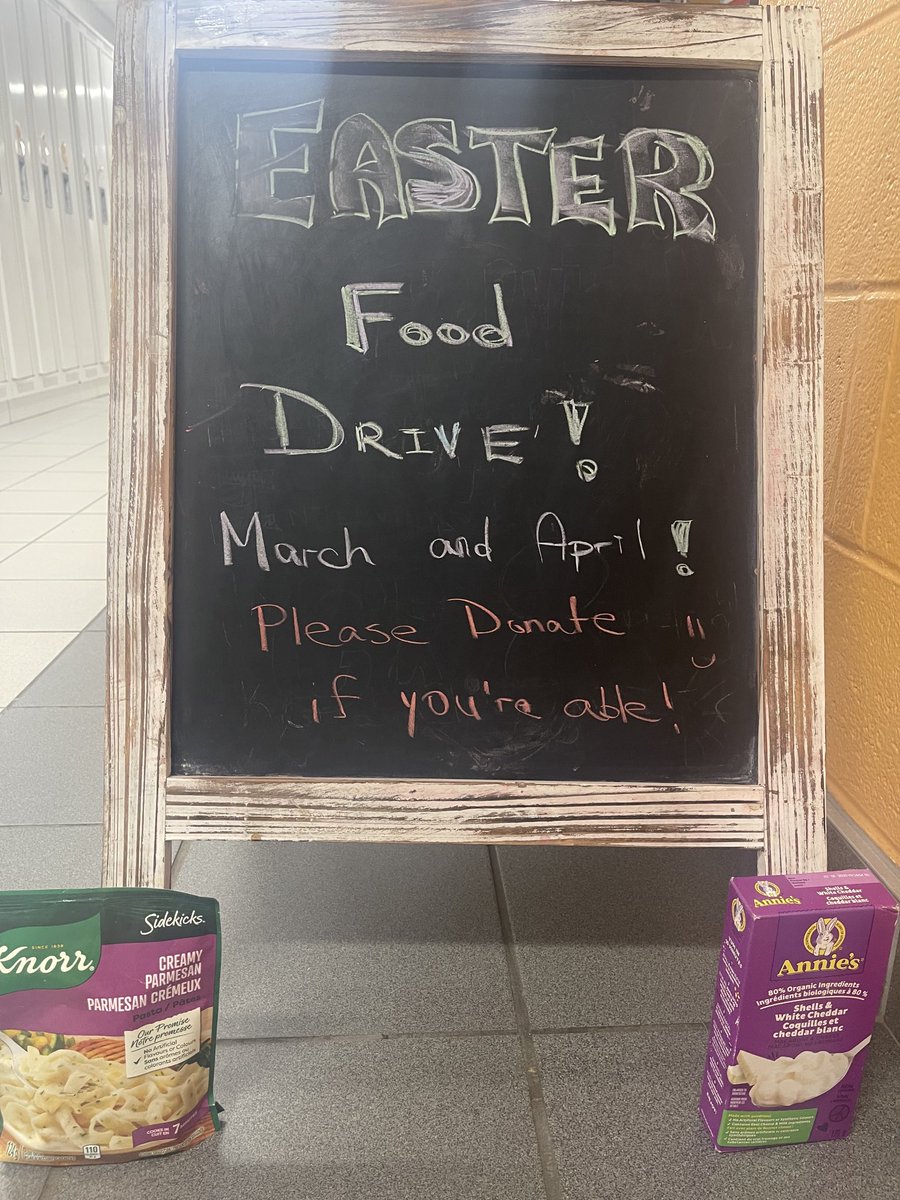 EASTER
Food
DRIVE!
March and April!
Please Donate
if you're able!
Sidekicks
SINCE 1838
Knorr
CREAMY
PARMESAN
PARMESAN CRÉMEUX
Pasta / Pâtes
Our Promise
Notre promesse
No Artificial
Flavours or Colours
Sans arômes ni
colorants artificiels
COOKS IN
CUIT EN 7
110
Annie's
Shells &
White Cheddar
Coquilles et
cheddar blanc
Annie's
80% Organic Ingredients
Ingrédients biologiques à 80 %
Shells &
White Cheddar
Coquilles et
cheddar blanc